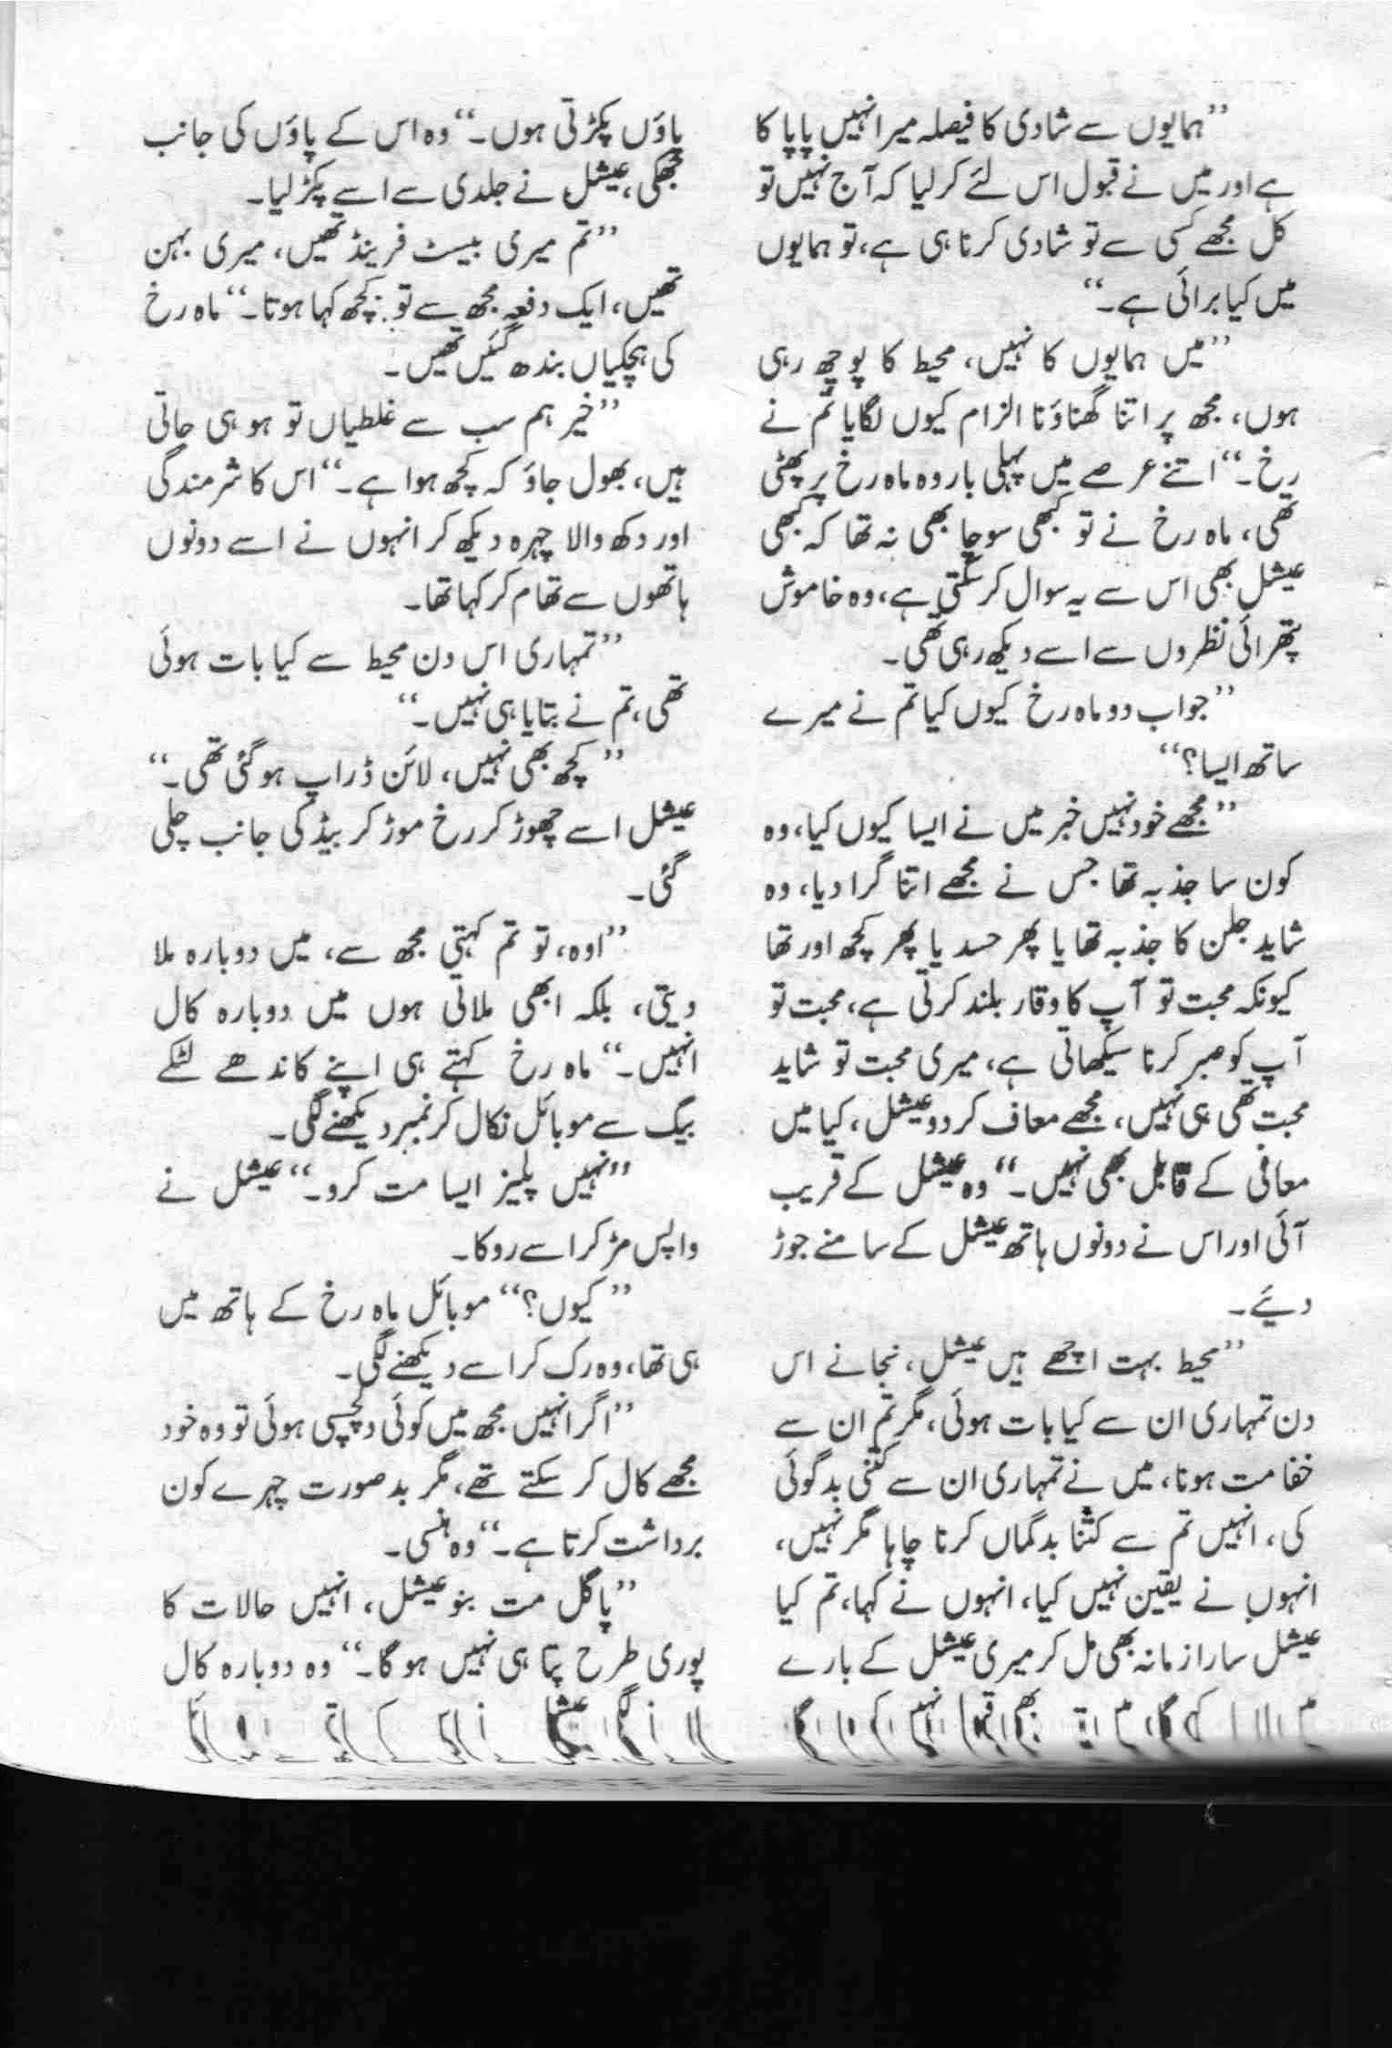 ”ہمایوں سے شادی کا فیصلہ میرا نہیں پاپا کا
ہے اور میں نے قبول اس لئے کر لیا کہ آج نہیں تو
کل مجھے کسی سے تو شادی کرنا ہی ہے، تو ہمایوں
میں کیا برائی ہے۔“
”میں ہمایوں کا نہیں، محیط کا پوچھ رہی
ہوں، مجھ پر اتنا گھناؤنا الزام کیوں لگایا تم نے
رخ۔“ اتنے عرصے میں پہلی بار وہ ماہ رخ پر پھٹی
تھی، ماہ رخ نے تو کبھی سوچا بھی نہ تھا کہ کبھی
عیشل بھی اس سے یہ سوال کر سکتی ہے، وہ خاموش
پتھرائی نظروں سے اسے دیکھ رہی تھی۔
”جواب دو ماہ رخ کیوں کیا تم نے میرے
ساتھ ایسا؟“
”مجھے خود نہیں خبر میں نے ایسا کیوں کیا، وہ
کون سا جذبہ تھا جس نے مجھے اتنا گرا دیا، وہ
شاید جلن کا جذبہ تھا یا پھر حسد یا پھر کچھ اور تھا
کیونکہ محبت تو آپ کا وقار بلند کرتی ہے، محبت تو
آپ کو صبر کرنا سیکھاتی ہے، میری محبت تو شاید
محبت تھی ہی نہیں، مجھے معاف کر دو عیشل، کیا میں
معافی کے قابل بھی نہیں۔“ وہ عیشل کے قریب
آئی اور اس نے دونوں ہاتھ عیشل کے سامنے جوڑ
دیئے۔
”محیط بہت اچھے ہیں عیشل، نجانے اس
دن تمہاری ان سے کیا بات ہوئی، مگر تم ان سے
خفا مت ہونا، میں نے تمہاری ان سے کتنی بدگوئی
کی، انہیں تم سے کتنا بدگماں کرنا چاہا مگر نہیں،
انہوں نے یقین نہیں کیا، انہوں نے کہا، تم کیا
عیشل سارا زمانہ بھی مل کر میری عیشل کے بارے
پاؤں پکڑتی ہوں۔“ وہ اس کے پاؤں کی جانب
جھکی، عیشل نے جلدی سے اسے پکڑ لیا۔
”تم میری بیسٹ فرینڈ تھیں، میری بہن
تھیں، ایک دفعہ مجھ سے تو کچھ کہا ہوتا۔“ ماہ رخ
کی ہچکیاں بندھ گئیں تھیں۔
”خیر ہم سب سے غلطیاں تو ہو ہی جاتی
ہیں، بھول جاؤ کہ کچھ ہوا ہے۔“ اس کا شرمندگی
اور دکھ والا چہرہ دیکھ کر انہوں نے اسے دونوں
ہاتھوں سے تھام کر کہا تھا۔
”تمہاری اس دن محیط سے کیا بات ہوئی
تھی، تم نے بتایا ہی نہیں۔“
”کچھ بھی نہیں، لائن ڈراپ ہو گئی تھی۔“
عیشل اسے چھوڑ کر رخ موڑ کر بیڈ کی جانب چلی
گئی۔
”اوہ، تو تم کہتی مجھ سے، میں دوبارہ ملا
دیتی، بلکہ ابھی ملاتی ہوں میں دوبارہ کال
انہیں۔“ ماہ رخ کہتے ہی اپنے کاندھے لٹکے
بیگ سے موبائل نکال کر نمبر دیکھنے لگی۔
”نہیں پلیز ایسا مت کرو۔“ عیشل نے
واپس مڑ کر اسے روکا۔
”کیوں؟“ موبائل ماہ رخ کے ہاتھ میں
ہی تھا، وہ رک کر اسے دیکھنے لگی۔
”اگر انہیں مجھ میں کوئی دلچسپی ہوئی تو وہ خود
مجھے کال کر سکتے تھے، مگر بدصورت چہرے کون
برداشت کرتا ہے۔“ وہ ہنسی۔
”پاگل مت بنو عیشل، انہیں حالات کا
پوری طرح پتا ہی نہیں ہو گا۔“ وہ دوبارہ کال